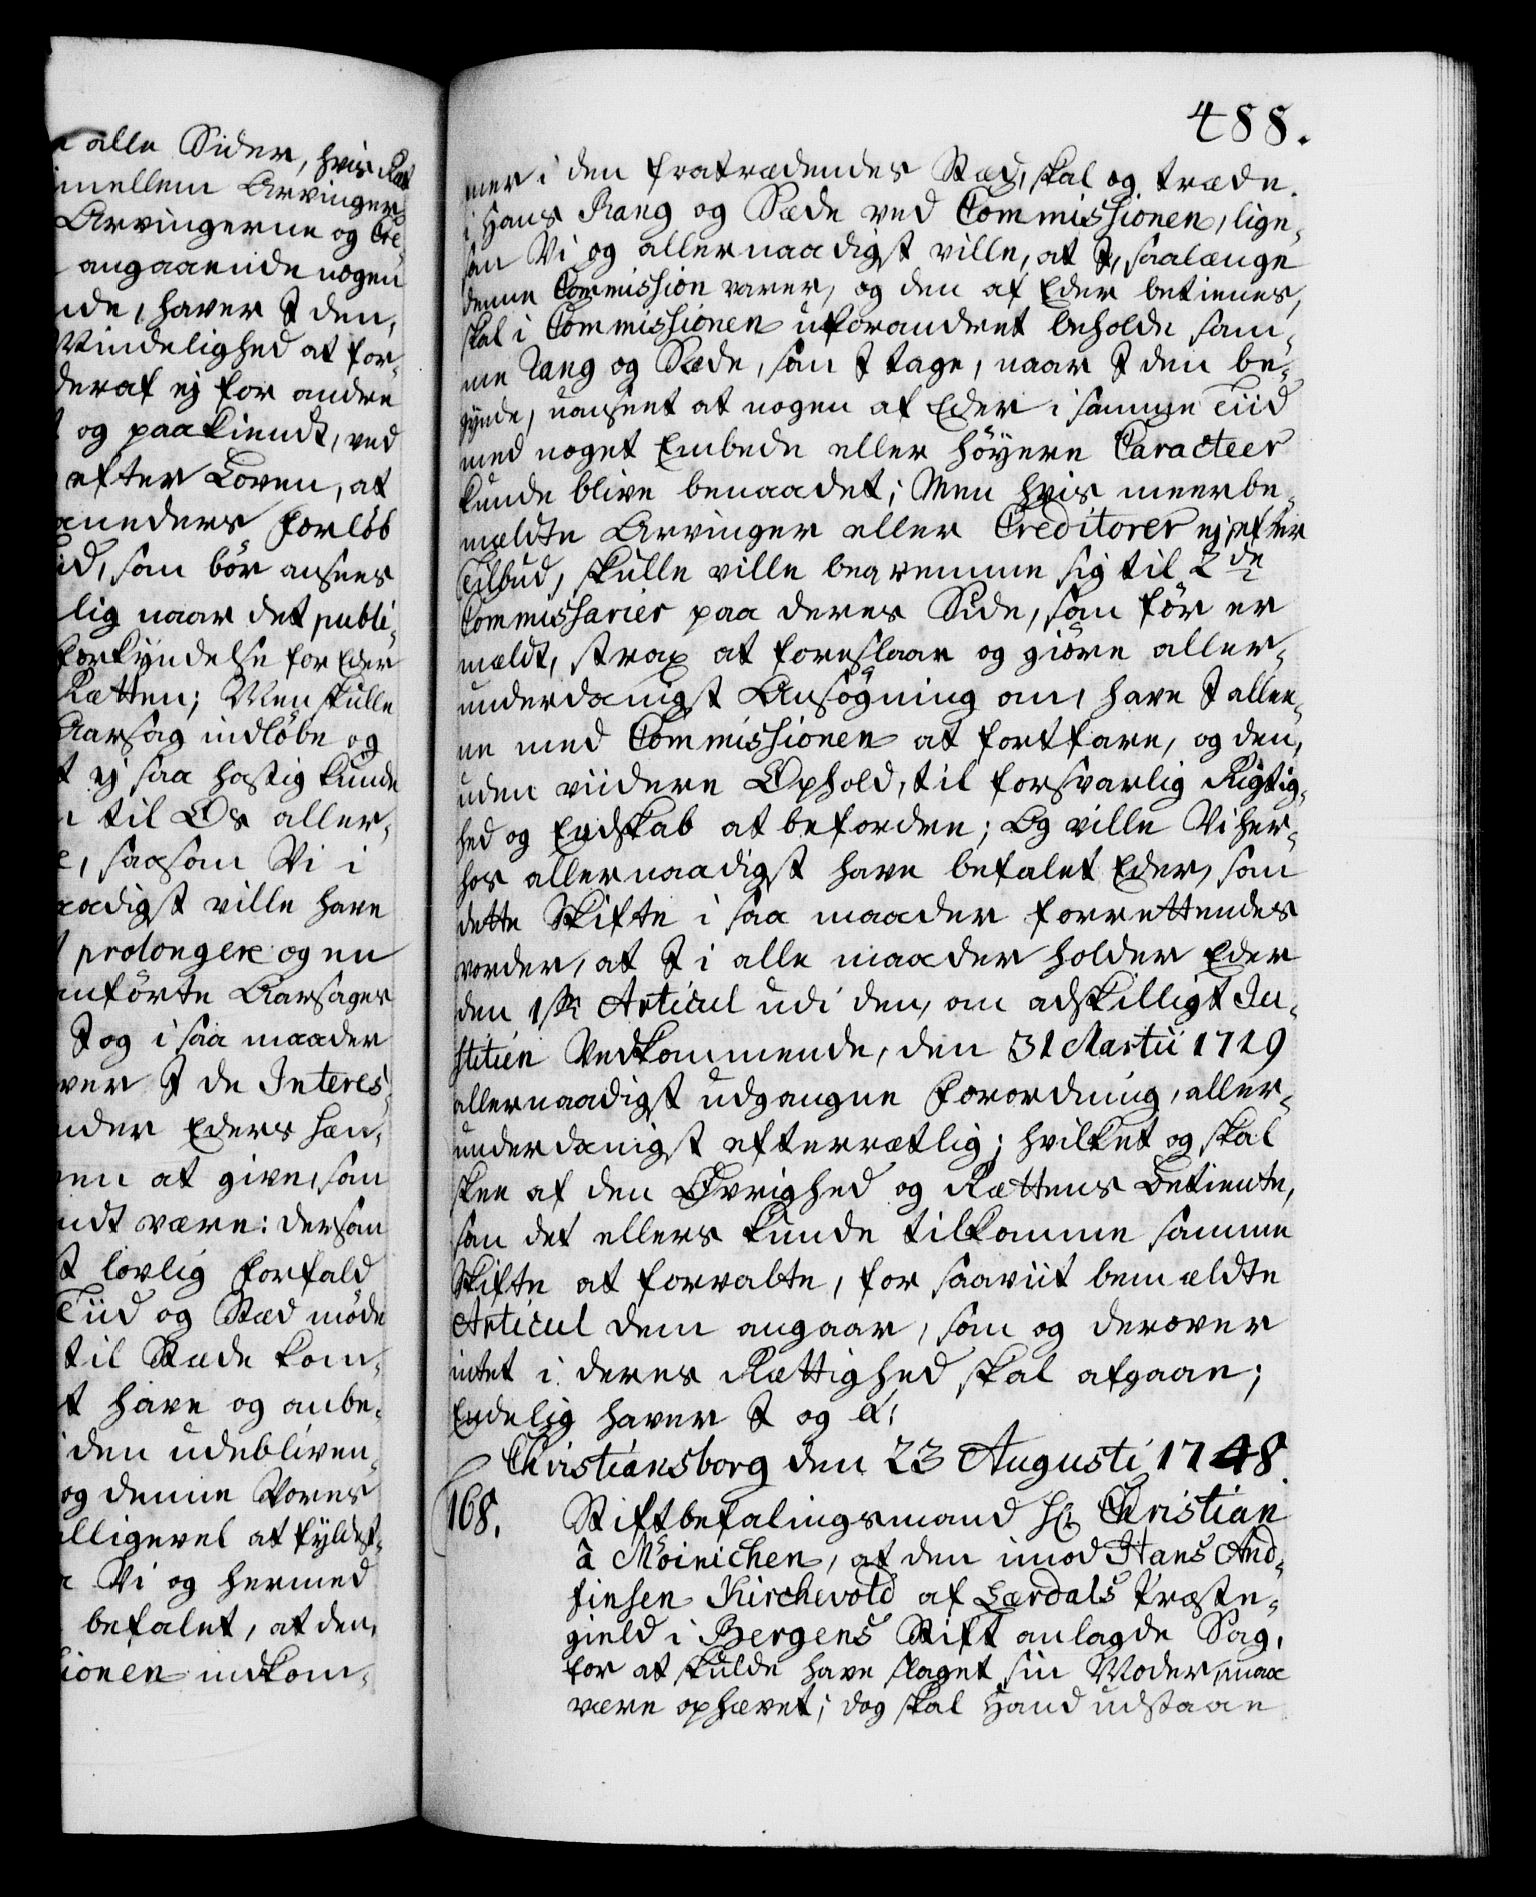 alle Sider, hvis Ret
imellem Arvinger
Arvingerne og Cre-
angaaende nogen
nde, haver I den,
Vindelighed at for-
deraf ej for andre
og paakiendt, ved
efter Loven, at
aneders Forløb
id, som bør ansees
lig naar det publi-
Forkyndelse for Eder
Rætten; Men skulle
Aarsag indløbe og
t ej saa hastig kunde
til Os aller-
e, saasom Vi i
aadigst ville have
prolongere og en
anførte Aarsager
I og i saa maader
ver I de Interes-
nder Eders Hæn-
en at give, som
ndt være: dersom
t lovlig Forfald
Tiid og Stæd møde
til Stæde kom-
t have og anbe-
den udebliven-
og denne Vores
alligevel at fyldest-
Vi og hermed
befalet, at den,
sionen indkom-
488.
mer i den fratrædendes Stæd, skal og træde
i Hans Rang og Sæde ved Commissionen, lige-
som Vi og allernaadigst ville, at I, saalænge
denne Commission varer, og den af Eder betienes,
skal i Commissionen uforandret beholde sam-
me Rang og Sæde, som I tage, naar I den be-
gynde, uanseet at nogen af Eder i samme Tiid
med noget Embede eller høyere Caracteer
kunde blive benaadet; Men hvis meerbe-
mældte Arvinger eller Creditorer ej, efter
Tilbud, skulle ville beqvemme sig til 2de
Commissarier paa deres Side, som før er
mældt, strax at foreslaae og giøre aller-
underdanigst Ansøgning om, have I alle-
ne med Commissionen at fortfare, og den,
uden viidere Ophold, til forsvarlig Rigtig-
hed og Endskab at befordre; Og ville Vi her-
hos allernaadigst have befalet Eder, som
dette Skifte i saa maader forrettendes
vorder, at I i alle maader holder Eder
den 1ste Articul udi den, om adskilligt Ju-
stitien Vedkommende, den 31 Martii 1719
allernaadigst udgangne Forordning, aller-
underdanigst efterrætlig; hvilket og skal
skee af den Øvrighed og Rættens Betiente,
som det ellers kunde tilkomme samme
Skifte at forvalte, for saaviit bemældte
Articul dem angaar, som og derover
intet i deres Rættighed skal afgaae;
Endelig haver I og &c:
Christiansborg den 23 Augusti 1748.
168. Stiftbefalingsmand Hr. Christian
â Möinichen, at den imod Hans And-
finsen Kirchevold af Lærdals Præste-
gield i Bergens Stift anlagde Sag,
for at skulde have slaget sin Moder, maa
være ophævet; dog skal Hand udstaae